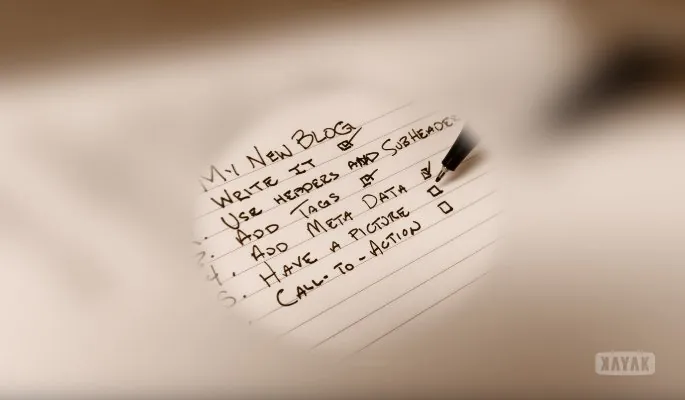 MY NEW BLOG
WRITE IT
USE HEADERS AND SUBHEADER
ADD TAGS
4. ADD META DATA
5. HAVE A PICTURE
CALL-TO-ACTION
KAYAK